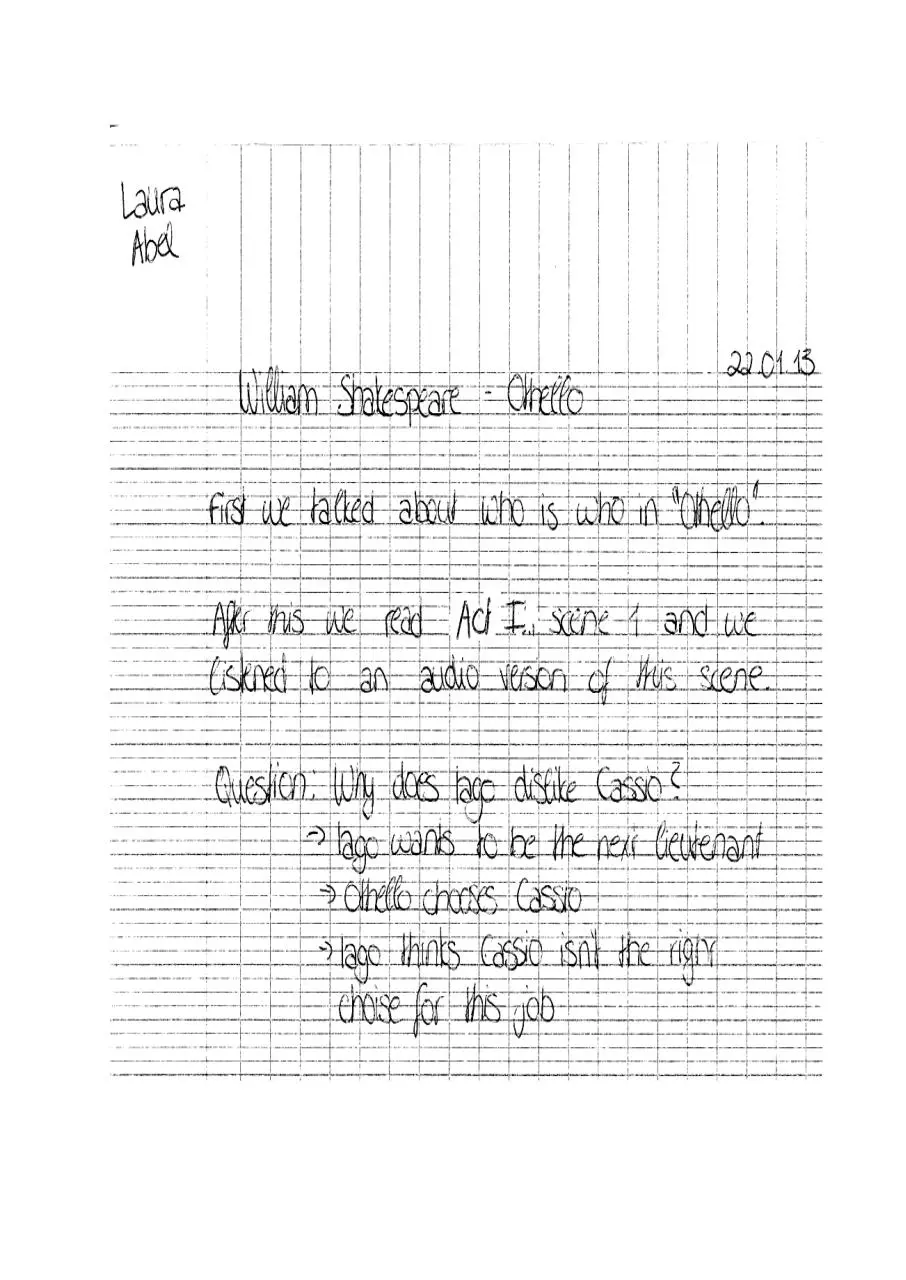 Laura
Abel
22.01.13
William Shakespeare - Othello
First we talked about who is who in "Othello".
After this we read Act I., scene 1 and we
listened to an audio version of this scene.
Question: Why does Iago dislike Cassio?
→ Iago wants to be the next lieutenant
→ Othello chooses Cassio
→ Iago thinks Cassio isn't the right
choise for this job